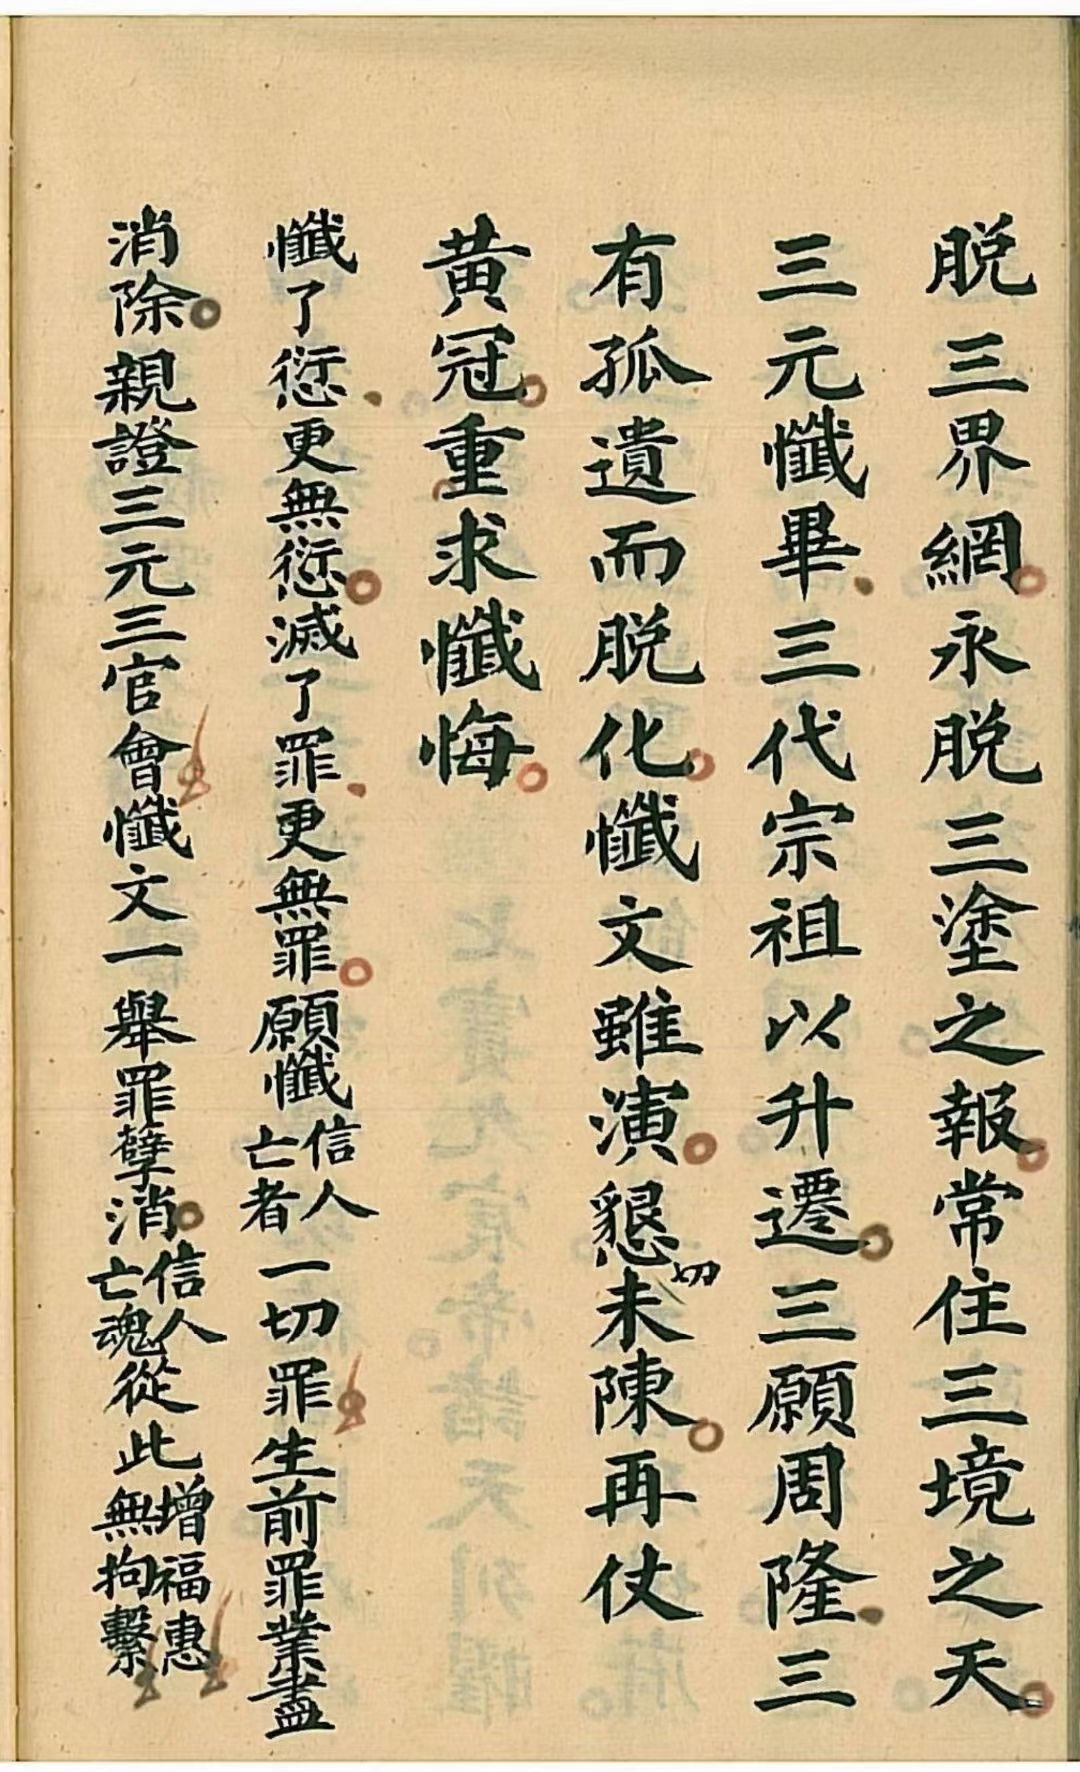 脱三界網永脱三塗之報常住三境之天
三元懺畢三代宗祖以升遷三願周隆三
有孤遺而脱化懺文雖演懇切未陳再仗
黄冠重求懺悔
懺了愆更無愆滅了罪更無罪願懺信人亡者一切罪生前罪業盡
消除親證三元三官會懺文一舉罪孽消信人亡魂從此增福惠無拘繫